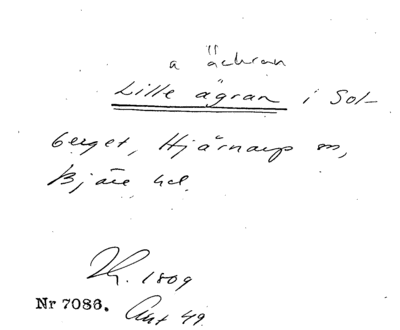 a äckran
Lille ägran i Sol-
berget, Hjärnarp sn,
Bjäre hd.
Lh. 1809
Nr 7086. Ant 49.